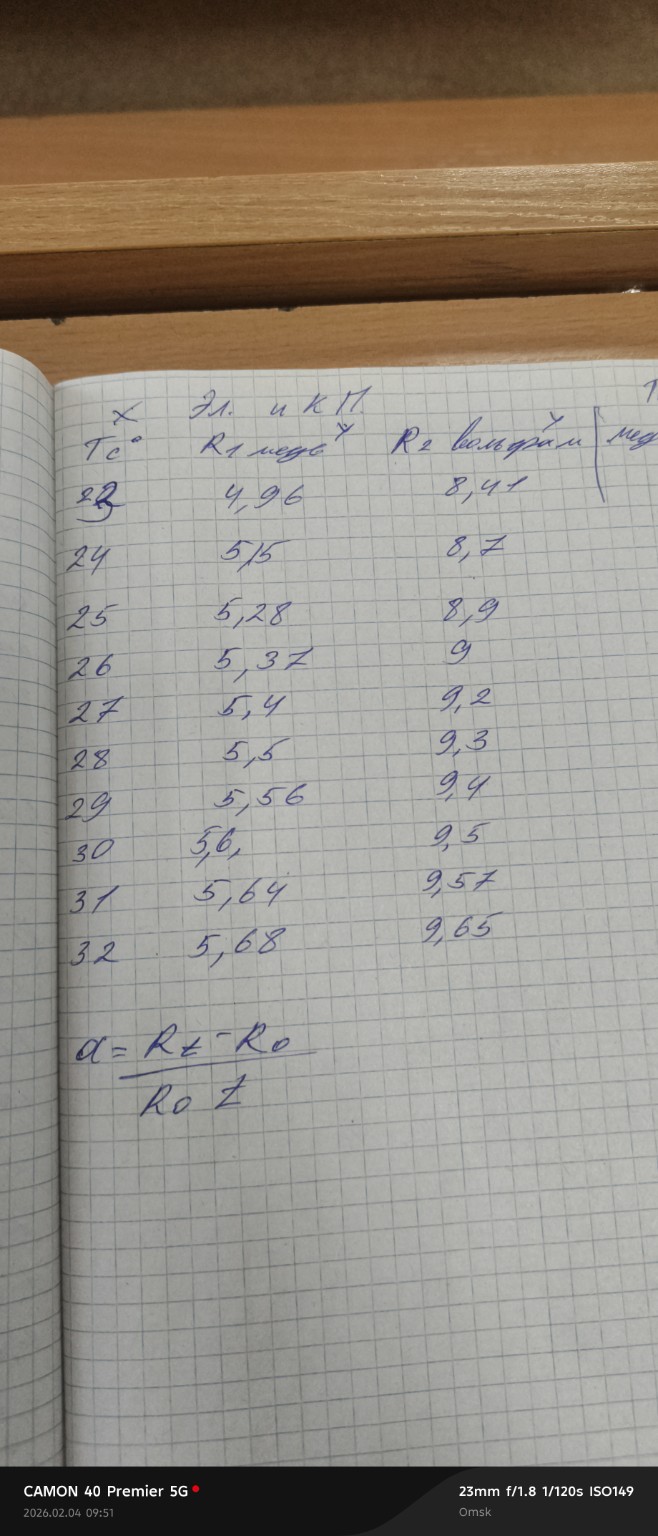 x Эл. и К П.
Tc° R1 медь y R2 вольфрам y
23 4,96 8,41
24 5,5 8,7
25 5,28 8,9
26 5,37 9
27 5,4 9,2
28 5,5 9,3
29 5,56 9,4
30 5,6, 9,5
31 5,64 9,57
32 5,68 9,65
α = Rt - R0
R0 t
CAMON 40 Premier 5G 23mm f/1.8 1/120s ISO149
2026.02.04 09:51 Omsk